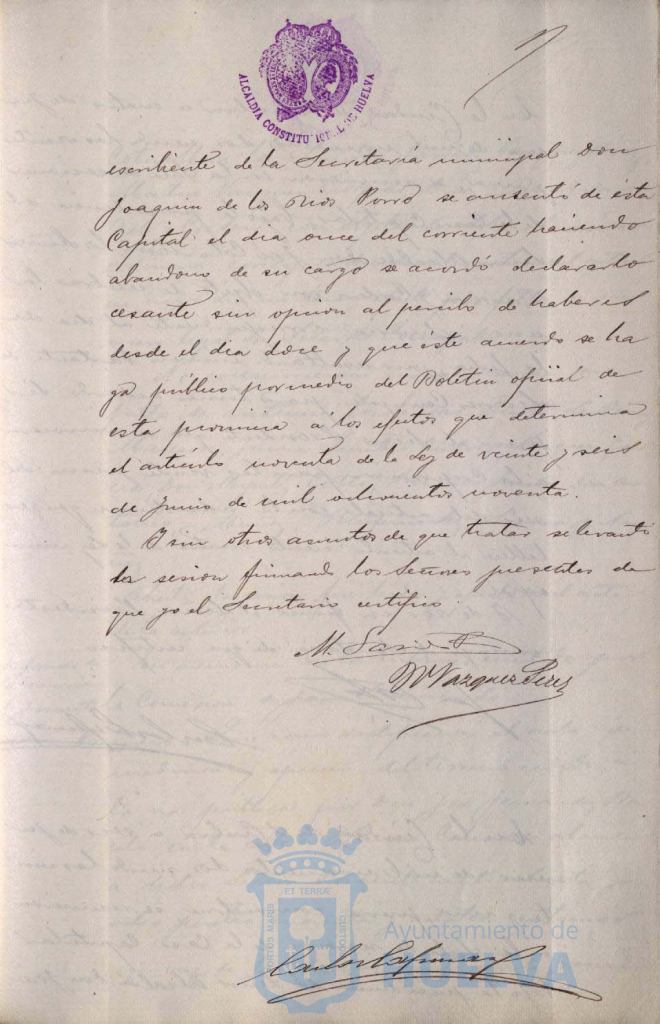 ALCALDIA CONSTITUCIONAL DE HUELVA
escribiente de la Secretaría municipal Don
Joaquin de los Rios Porro se ausentó de ésta
Capital el dia once del corriente haciendo
abandono de su cargo se acordó declararlo
cesante sin opcion al percibo de haberes
desde el dia doce y que éste acuerdo se ha
ga público por medio del Boletin oficial de
esta provincia á los efectos que determina
el artículo noventa de la Ley de veinte y seis
de Junio de mil ochocientos noventa.
Y sin otros asuntos de que tratar se levantó
la sesion firmando los Señores presentes de
que yo el Secretario certifico.
M.
M Vazquez Perez
ET TERRA
PORTUS MARIS
CUSTODIA
Ayuntamiento de
HUELVA
Carlos